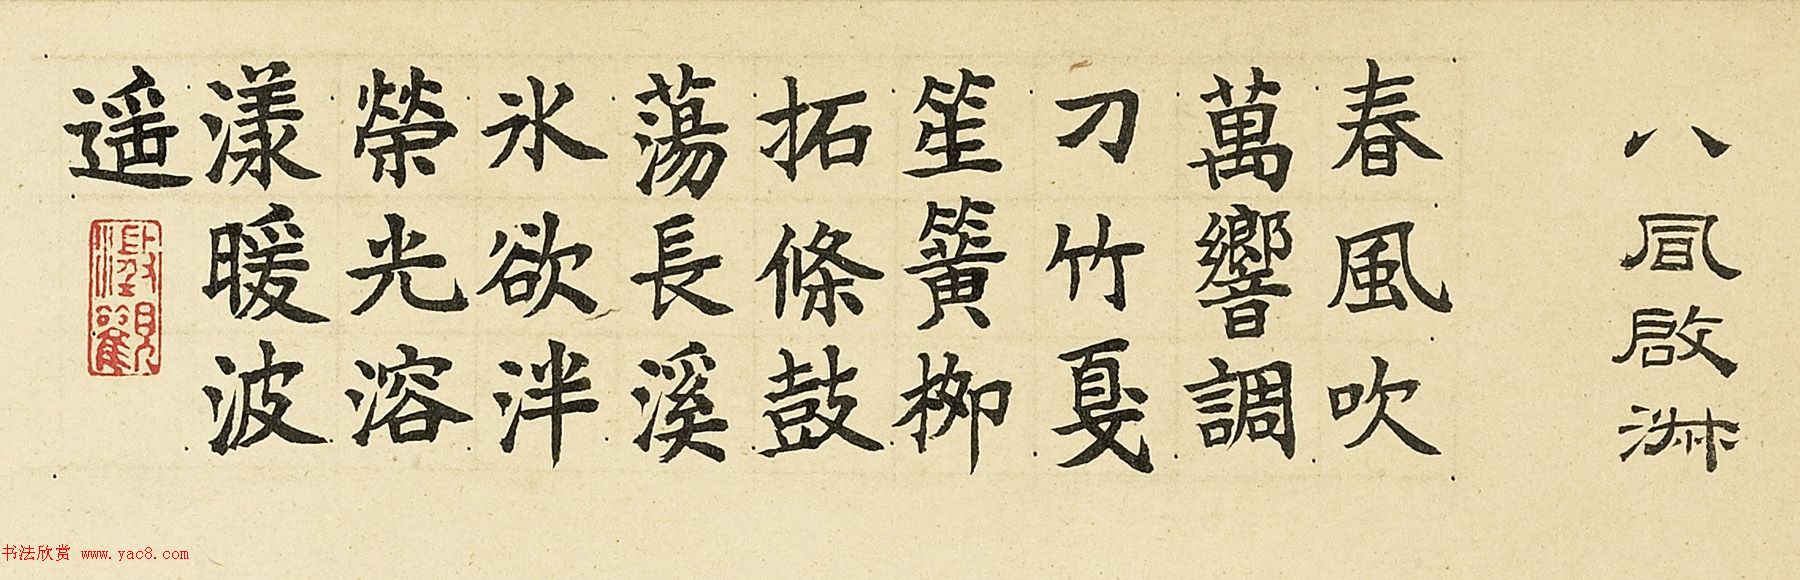 八風啟
春風吹
萬響調
刁竹戛
笙簧柳
拓條鼓
蕩長溪
氷欲泮
榮光溶
漾暖波
遥
澂觀
书法欣赏 www.yac8.com